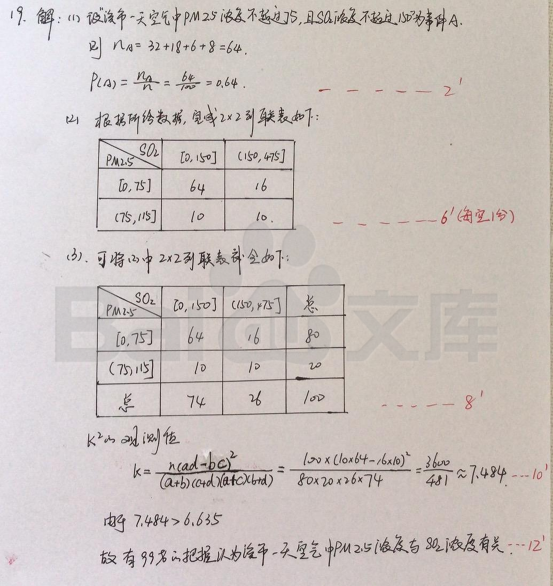 19. 解: (1) 设"该市一天空气中PM2.5浓度不超过75,且SO₂浓度不超过150"为事件A.
则 n_A = 32+18+6+8 = 64.
P(A) = n_A/n = 64/100 = 0.64.  ----- 2'
(2) 根据所给数据,完成2×2列联表如下:
PM2.5 SO₂ [0,150] (150,475]
[0,75] 64 16
(75,115] 10 10.
----- 6' (每空1分)
(3). 可将(2)中2×2列联表补全如下:
PM2.5 SO₂ [0,150] (150,475] 总
[0,75] 64 16 80
(75,115] 10 10 20
总 74 26 100
----- 8'
K²的观测值
k = n(ad-bc)²/(a+b)(c+d)(a+c)(b+d) = 100×(10×64-16×10)²/80×20×26×74 = 3600/481 ≈ 7.484. --- 10'
由于 7.484 > 6.635
故有99%的把握认为该市一天空气中PM2.5浓度与SO₂浓度有关. --- 12'
Bai 文库